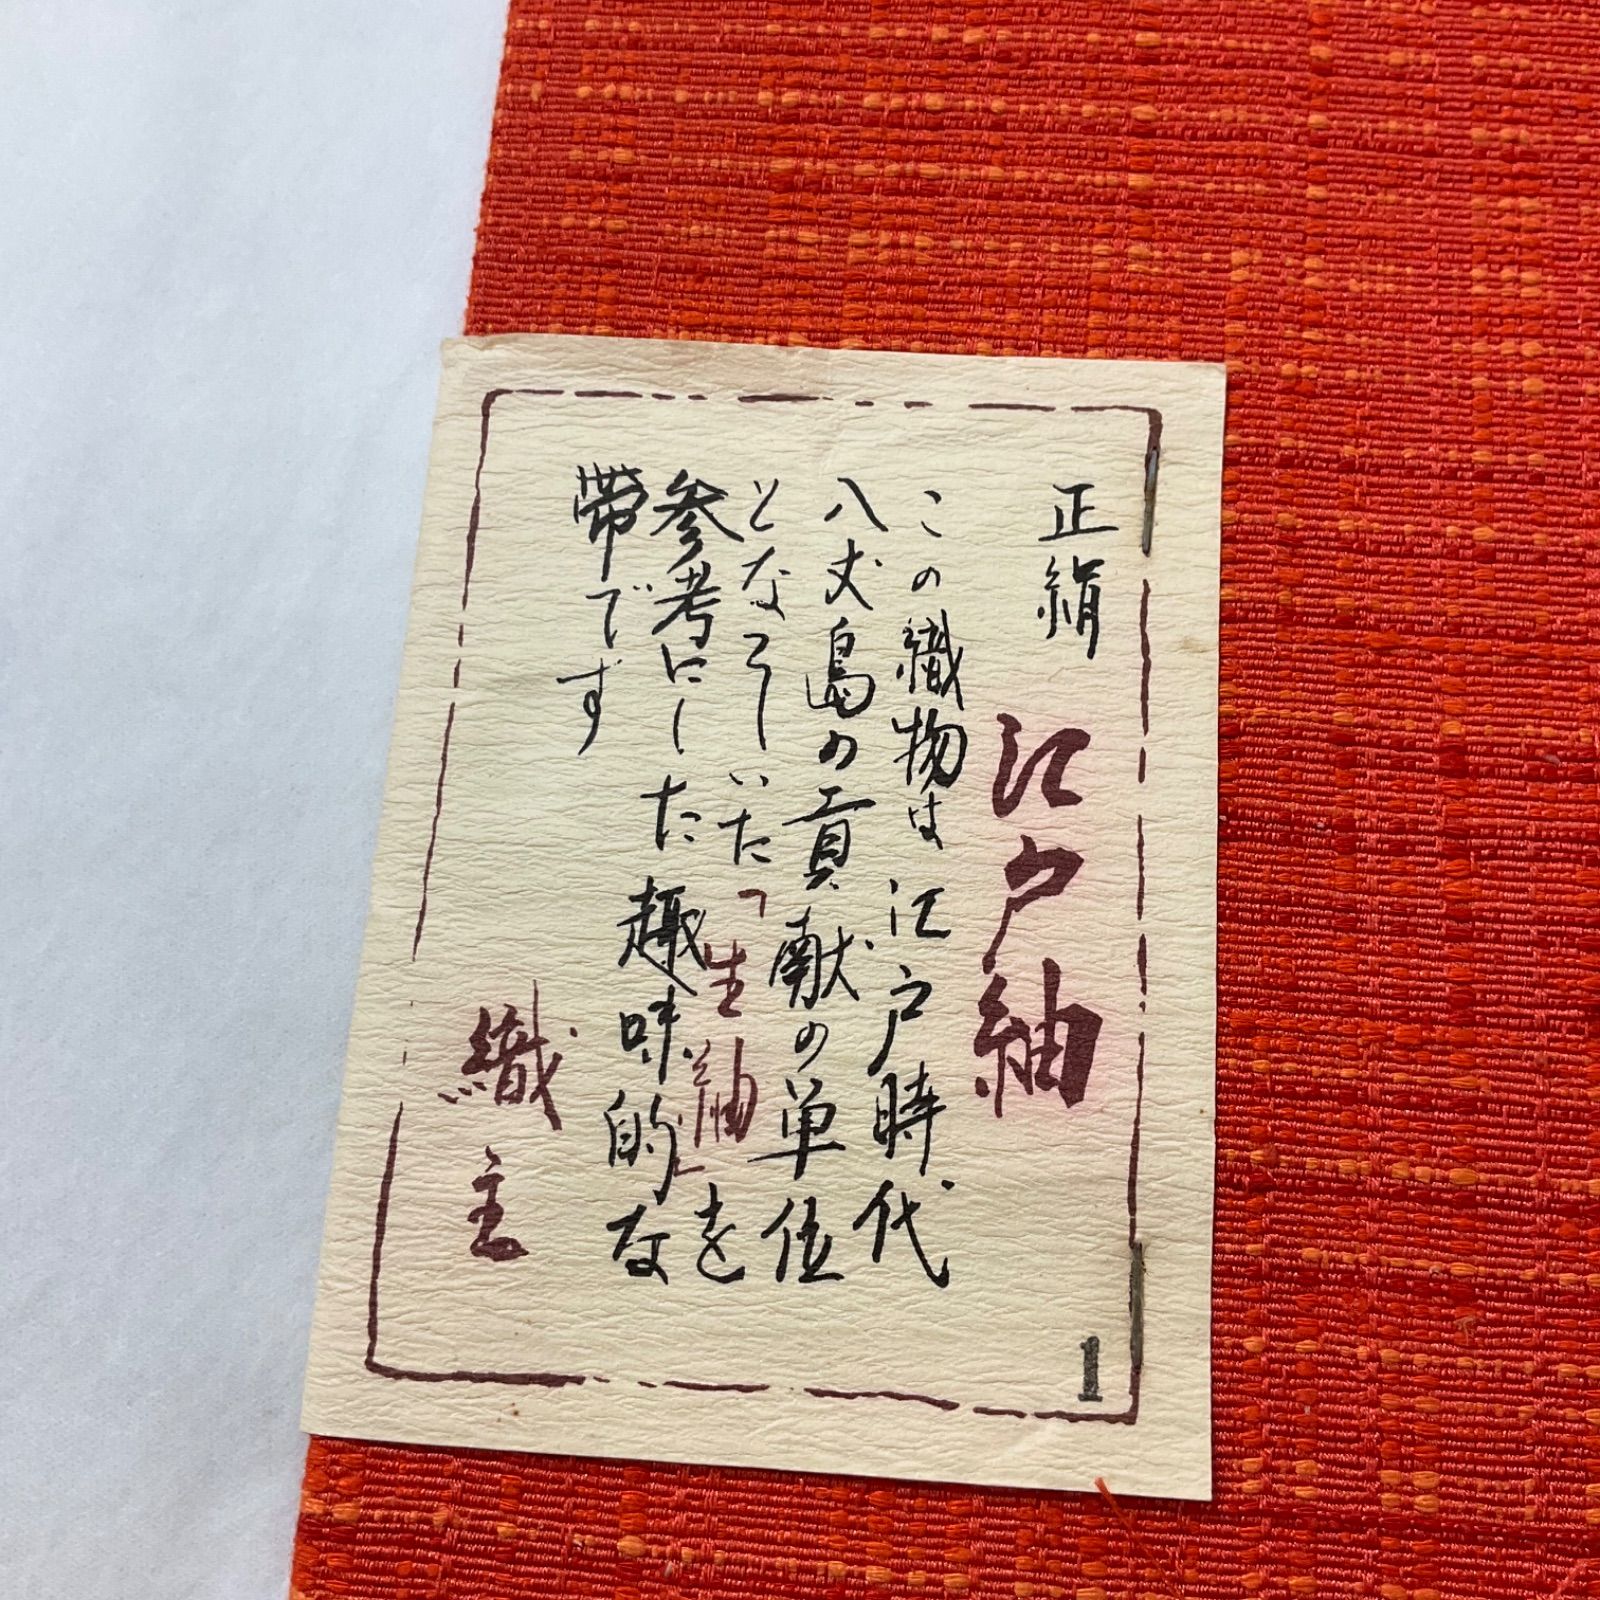 正絹 江戸紬
この織物は江戸時代
八丈島の貢献の単位
となっていた「生紬」を
参考にした趣味的な
帯です
織主
1